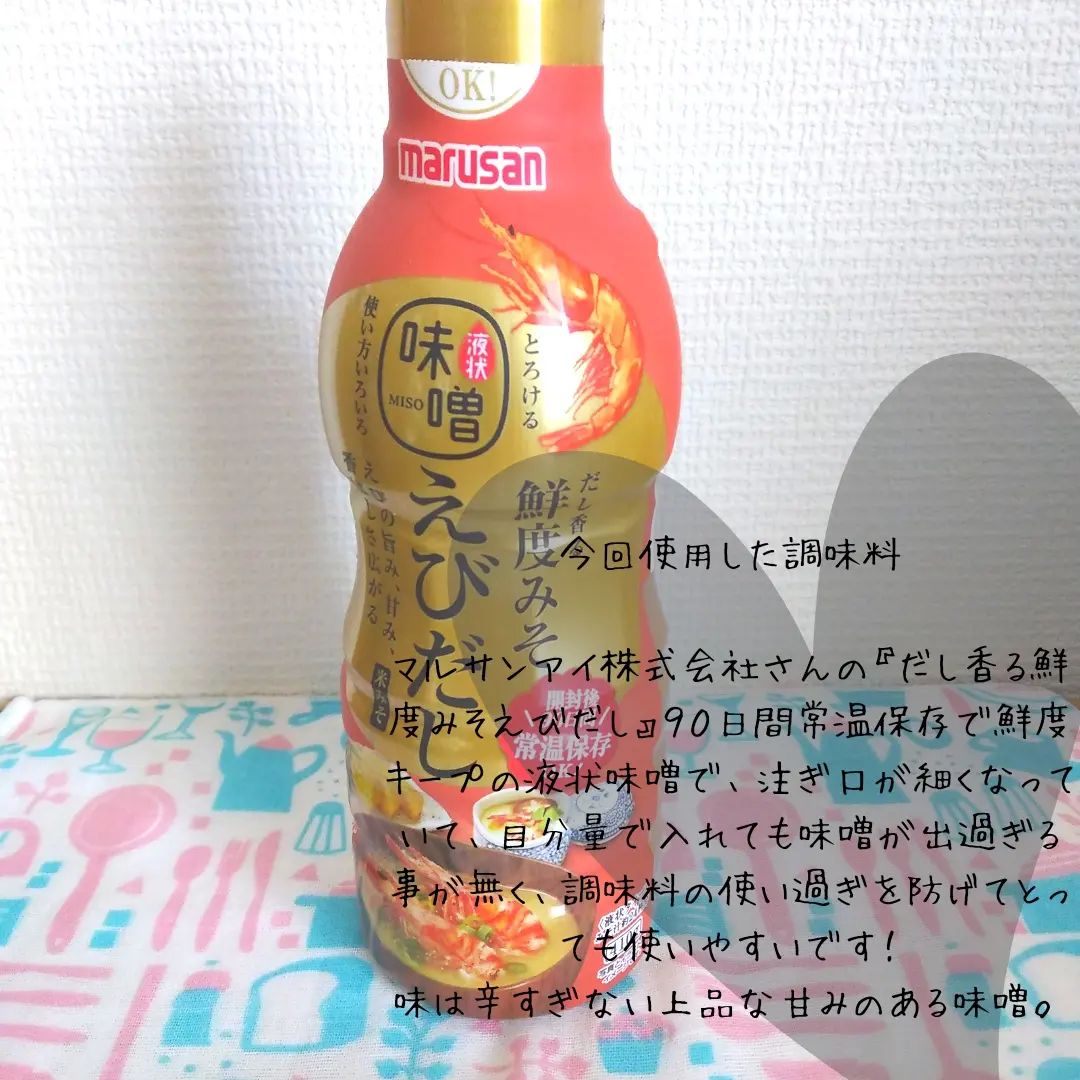 OK!
marusan
とろける
液状
味噌
MISO
使い方いろいろ
だし香る
鮮度みそ
えびだし
えびの旨み、甘み、
広がる
米みそ
開封後
常温保存
今回使用した調味料
マルサンアイ株式会社さんの『だし香る鮮
度みそえびだし』90日間常温保存で鮮度
キープの液状味噌で、注ぎ口が細くなって
いて、目分量で入れても味噌が出過ぎる
事が無く、調味料の使い過ぎを防げてとっ
ても使いやすいです!
味は辛すぎない上品な甘みのある味噌。